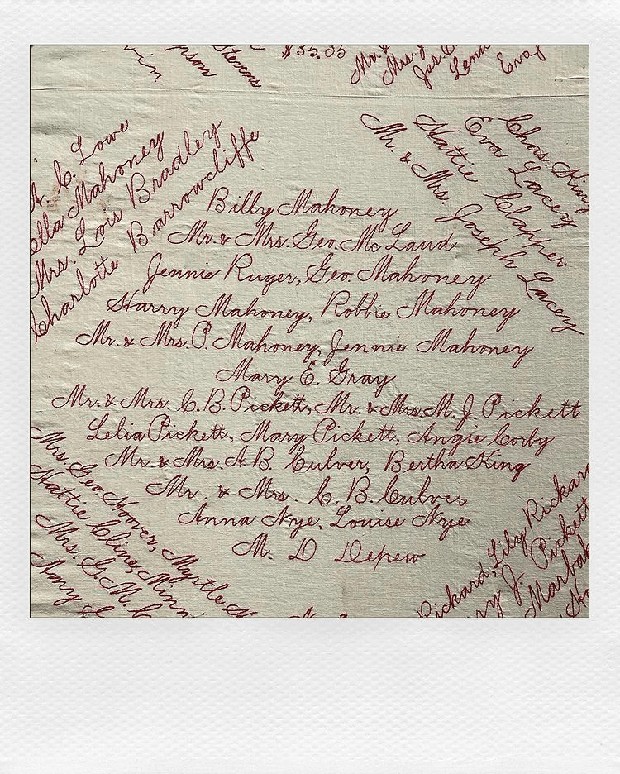 Stevens
$35.00
Mr.
Mrs.
Eva
C. Lowe
ella Mahoney
Mrs. Lois Bradley
Charlotte Barrowcliffe
Chas King
Eva Lacey
Hattie Clapper
Mr. & Mrs. Joseph Lacey
Billy Mahoney
Mr. & Mrs. Geo. Mc Laud
Jennie Ruger, Geo. Mahoney
Harry Mahoney, Robbie Mahoney
Mr. & Mrs. P. Mahoney, Jennie Mahoney
Mary E. Gray
Mr. & Mrs. C. B. Pickett, Mr. & Mrs. M. J. Pickett
Lelia Pickett, Mary Pickett, Angie Corby
Mr. & Mrs. A. B. Culver, Bertha King
Mr. & Mrs. C. B. Culver
Anna Nye, Louise Nye
M. D Depew
Mrs. Geo Hover, Myrtle
Hattie Cline, Minn
Mrs. G. M. C
Amy
Rickard, Lily Rickar
J. Pickett
Marba